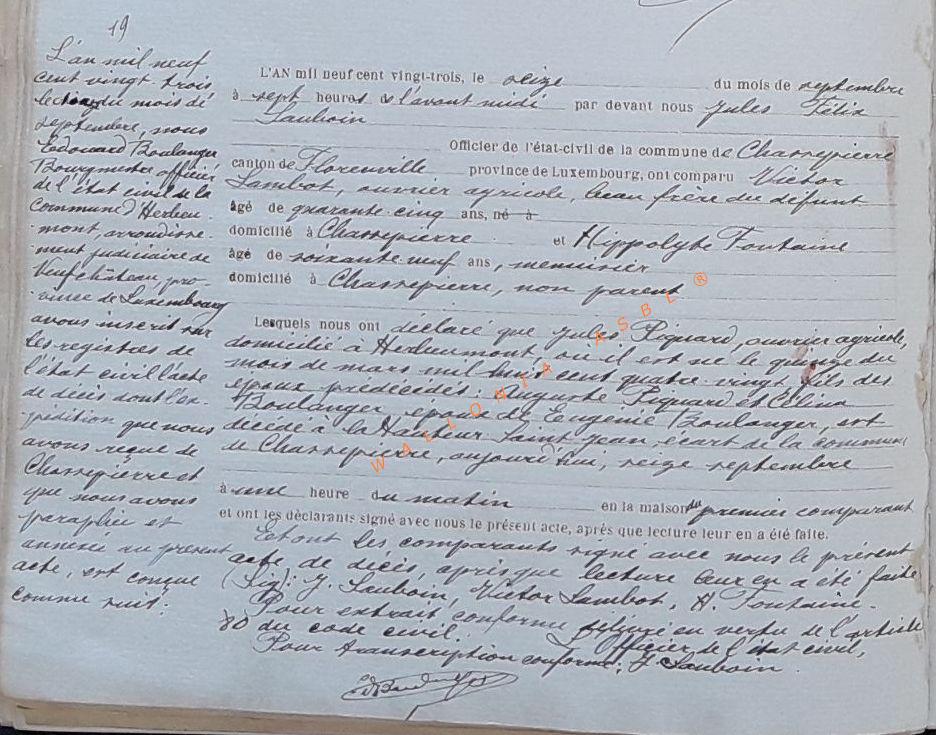 19
L'an mil neuf
cent vingt trois
le du mois de
septembre, nous
Edouard Boulanger
Bourgmestre officier
de l'état civil de la
Commune d'Herbeu-
mont arrondisse-
ment judiciaire de
Neufchâteau, pro-
vince de Luxembourg
avons inscrit sur
les registres de
l'état civil l'acte
de décès dont l'ex-
pédition que nous
avons reçue de
Chassepierre et
que nous avons
paraphée et
annexé au présent
acte, est conçue
comme suit:
L'AN mil neuf cent vingt-trois, le seize du mois de septembre
à sept heures de l'avant midi par devant nous Jules Félix
Sauboin
Officier de l'état-civil de la commune de Chassepierre
canton de Florenville province de Luxembourg, ont comparu Victor
Lambot, ouvrier agricole, beau frère du défunt
âgé de quarante-cinq ans, né à
domicilié à Chassepierre et Hippolyte Fontaine
âgé de soixante neuf ans, menuisier
domicilié à Chassepierre, non parent
Lesquels nous ont déclaré que Jules Piquard, ouvrier agricole,
domicilié à Herbeumont, où il est né le quinze du
mois de mars mil huit cent quatre-vingt fils des
époux prédécédés Auguste Piquard et Célina
Boulanger, époux de Eugénie Boulanger, est
décédé à la Hauteur Saint Jean, écart de la commune
de Chassepierre, aujourd'hui, seize septembre
à une heure du matin en la maison du premier comparant
et ont les déclarants signé avec nous le présent acte, après que lecture leur en a été faite.
Et ont les comparants signé avec nous le présent
acte de décès, après que lecture leur en a été faite
(Sig): J. Sauboin, Victor Lambot, H. Fontaine.
Pour extrait conforme délivré en vertu de l'article
80 du code civil. L'officier de l'état civil,
Pour transcription conforme; J. Sauboin.
WALLONIA ASBL ®